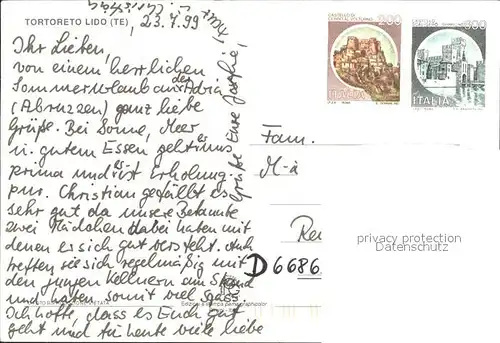 TORTORETO LIDO (TE)
23.7.99
Ihr Lieben,
von einem herrlichen
Sommerurlaub an der Adria
(Abruzzen) ganz liebe
Grüße. Bei Sonne, Meer
u. gutem Essen geht es uns
prima und es ist Erholung
pur. Christian gefällt es
sehr gut da unsere Bekannte
zwei Mädchen dabei haben mit
denen er sich gut versteht. Auch
treffen sie sich regelmäßig mit
den jungen Kellnern am Strand
und haben somit viel Spass.
Ich hoffe, dass es Euch gut
geht und für heute viele liebe
Grüße Eure Josefine,
CASTELLO DI
CERRO AL VOLTURNO
200
ITALIA
800
ITALIA
Fam.
M-a
Re
D 6686
privacy protection
Datenschutz